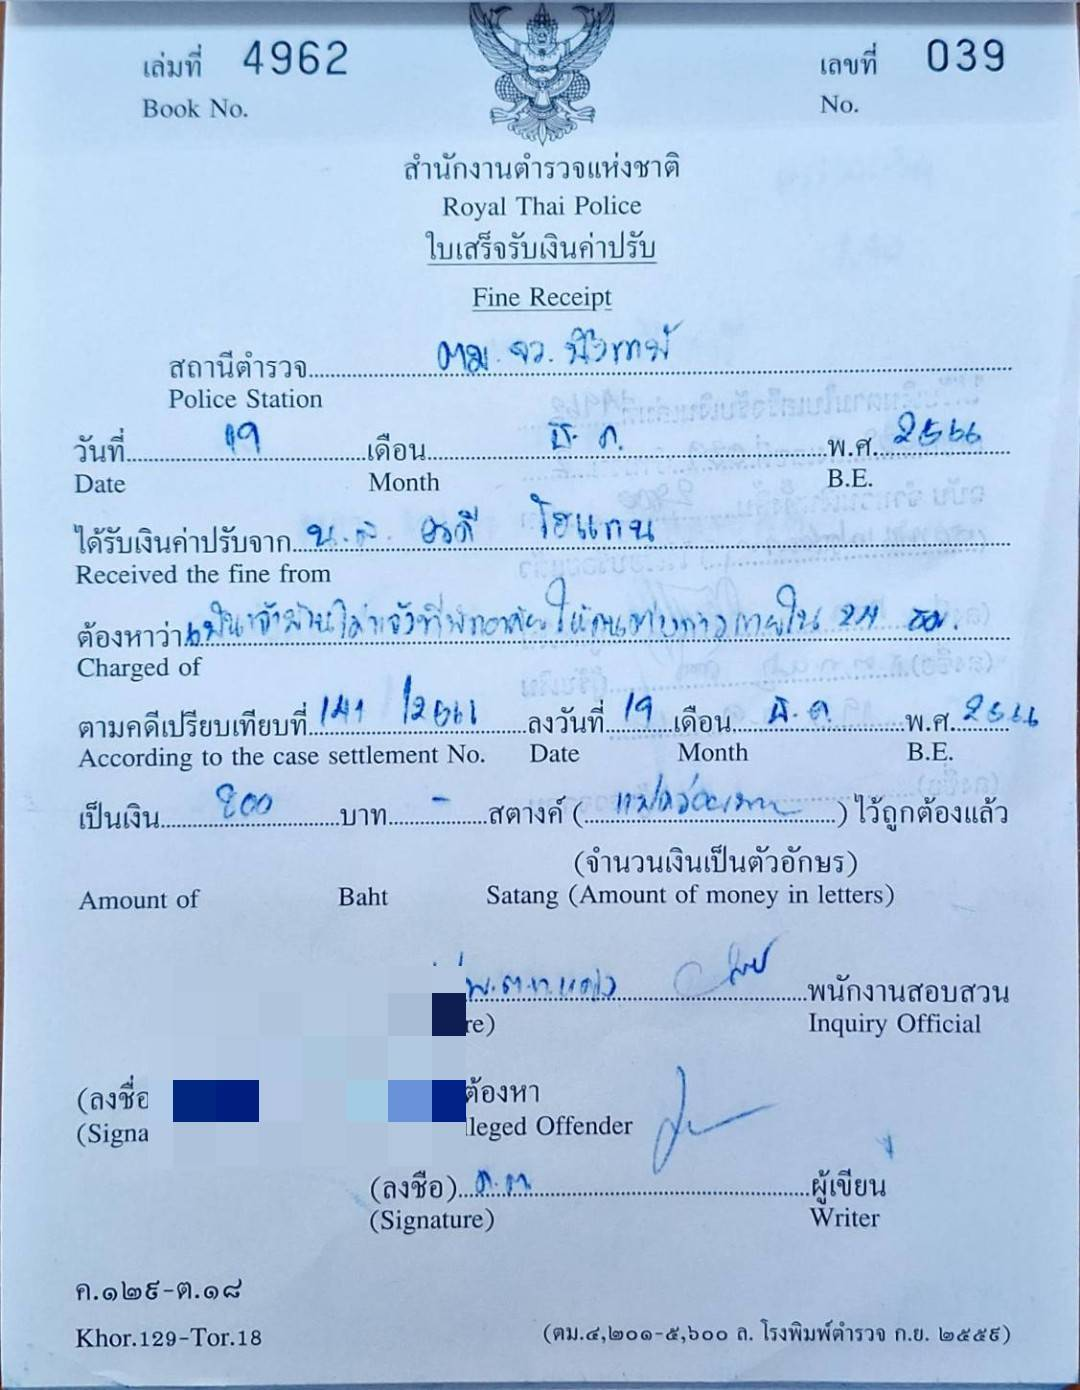 เล่มที่ 4962 เลขที่ 039
Book No. No.
สำนักงานตำรวจแห่งชาติ
Royal Thai Police
ใบเสร็จรับเงินค่าปรับ
Fine Receipt
สถานีตำรวจ ตม.จว.
Police Station
วันที่ 19 เดือน มี.ค. พ.ศ. 2566
Date Month B.E.
ได้รับเงินค่าปรับจาก น.ส.
Received the fine from
ต้องหาว่า เป็นเจ้าบ้านไม่แจ้งที่พักอาศัยให้คนต่างด้าวภายใน 24 ชม.
Charged of
ตามคดีเปรียบเทียบที่ 141 /2566 ลงวันที่ 19 เดือน มี.ค. พ.ศ. 2566
According to the case settlement No. Date Month B.E.
เป็นเงิน 800 บาท - สตางค์ (แปดร้อยบาท) ไว้ถูกต้องแล้ว
(จำนวนเงินเป็นตัวอักษร)
Amount of Baht Satang (Amount of money in letters)
พ.ต.ท.หญิง พนักงานสอบสวน
re) Inquiry Official
(ลงชื่อ ต้องหา
(Signa lleged Offender
(ลงชื่อ) ด.ต. ผู้เขียน
(Signature) Writer
ค.๑๒๙-ต.๑๘
Khor.129-Tor.18 (ตม.๔,๒๐๑-๕,๖๐๐ ล. โรงพิมพ์ตำรวจ ก.ย. ๒๕๕๙)